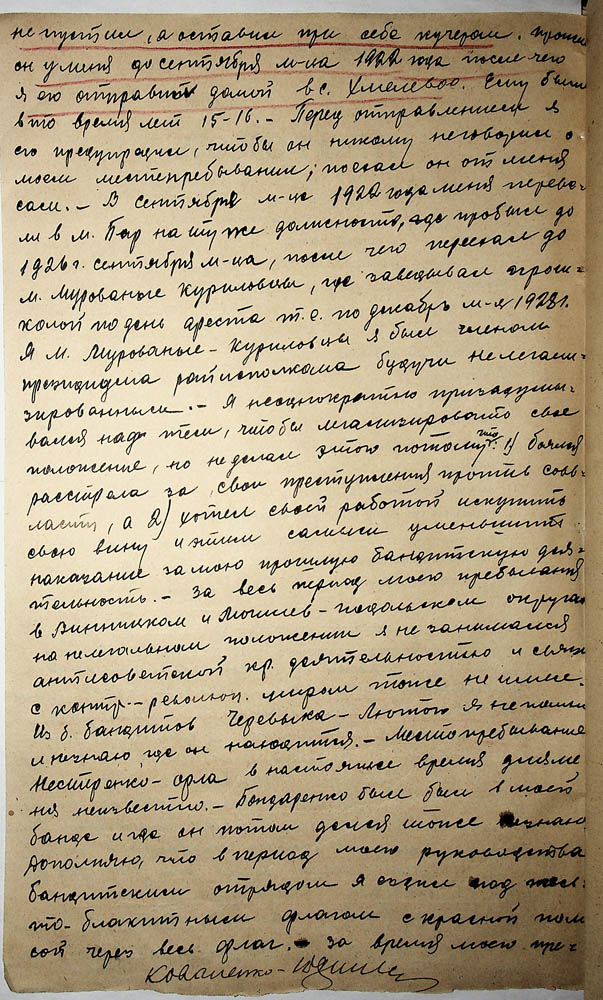 не пустил, а оставил при себе кучером. Прожил
он у меня до сентября м-ца 1922 года после чего
я его отправил домой в с. Хмелевое. Ему было
в то время лет 15-16. – Перед отправлением я
его предупредил, чтобы он никому не говорил о
моем местепребывании; поехал он от меня
сам. – В сентябре м-це 1922 года меня переве-
ли в м. Бар на ту же должность, где пробыл до
1926 г. сентября м-ца, после чего переехал до
м. Мурованые Куриловцы, где заведывал агрош-
колой по день ареста т.е. по декабрь м-ц 1928 г.
Я м. Мурованые-Куриловцы я был членом
президиума райисполкома будучи не легали-
зированным. – Я неоднократно призадумы-
вался над тем, чтобы легализировать свое
положение, но не делал этого потому что: 1) боялся
расстрела за свои преступления против совв-
ласти, а 2) хотел своей работой искупить
свою вину и этим самым уменьшить
наказание за мою прошлую бандитскую дея-
тельность. – За весь период моего пребывания
в Винницком и Могилев-Подольском округах
на нелегальном положении я не занимался
антисоветской к.р. деятельностью и связи
с контр.-революц. миром тоже не имел.
Из б. бандитов Черевыка-Лютого я не помню
и не знаю, где он находится. – Местопребывание
Нестеренко-Орла в настоящее время для ме
ня неизвестно. – Бондаренко был был в моей
банде и где он потом делся тоже не знаю
Дополняю, что в период моего руководства
бандитским отрядом я ездил под жов-
то-блакитным флагом с красной поло
сой через весь флаг. – За время моего пре-
Коваленко-Юдин